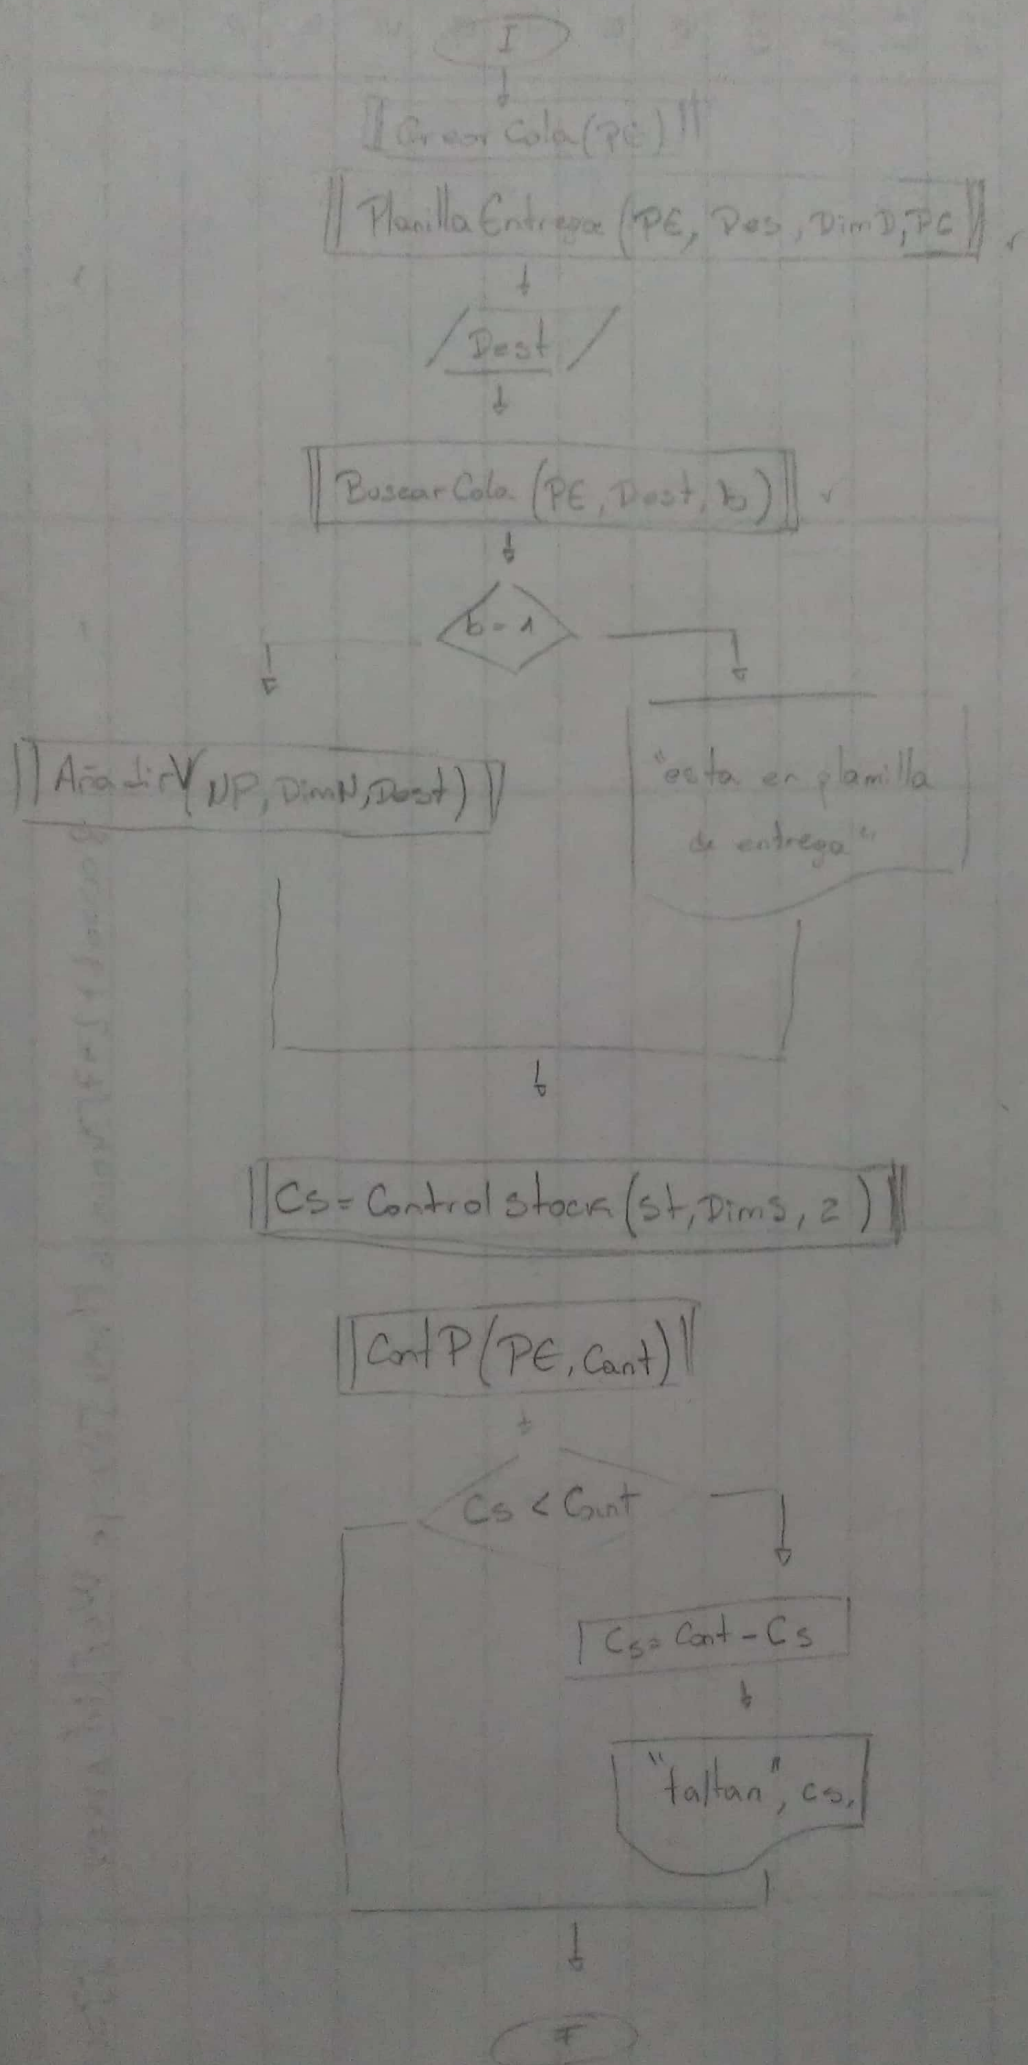 I
Crear Cola (PE)
Planilla Entrega (PE, Des, DimD, PE
Dest
Buscar Cola (PE, Dest, b)
b = 1
AñadirV (NP, DimN, Dest)
"esta en planilla
de entrega"
Cs = Control stock (st, DimS, 2)
Cont P (PE, Cant)
Cs < Cant
Cs = Cant - Cs
"faltan", cs,
F